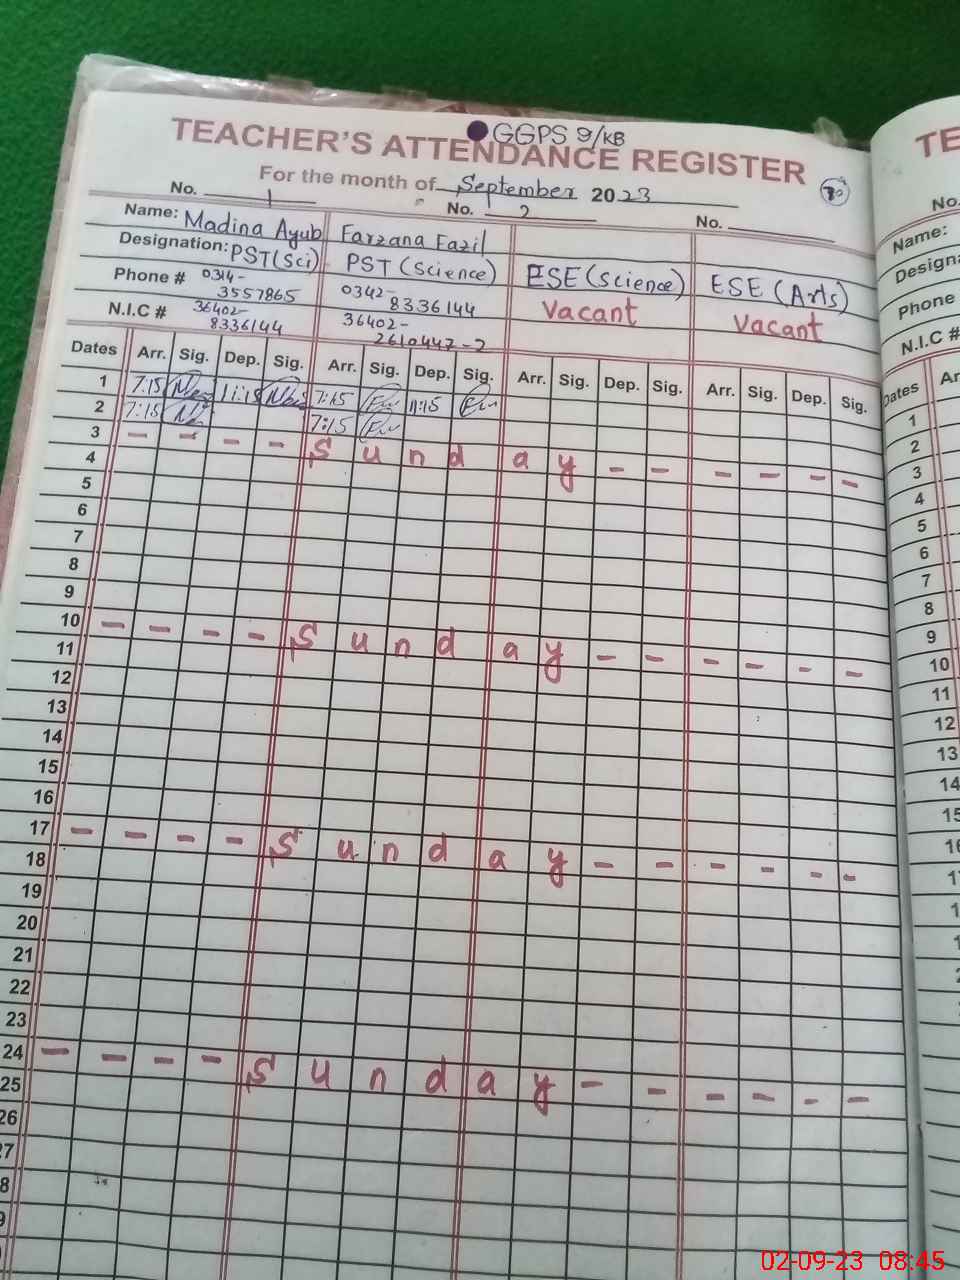 GGPS 9/KB
TEACHER'S ATTENDANCE REGISTER
For the month of September 2023
No. 1 No. 2 No.
Name: Madina Ayub Farzana Fazil
Designation: PST(Sci) PST (Science) ESE (Science) ESE (Arts)
Phone # 0314-3557865 0342-8336144 Vacant Vacant
N.I.C # 36402-8336144 36402-2610447-2
Dates Arr. Sig. Dep. Sig. Arr. Sig. Dep. Sig. Arr. Sig. Dep. Sig. Arr. Sig. Dep. Sig.
1 7:15 11:15 7:15 11:15
2 7:15 7:15
3 - - - - Sunday - - - - - -
4
5
6
7
8
9
10 - - - - Sunday - - - - - -
11
12
13
14
15
16
17 - - - - Sunday - - - - - -
18
19
20
21
22
23
24 - - - - Sunday - - - - - -
25
26
27
8
9
TE
No.
Name:
Design
Phone
N.I.C #
Dates Ar
1
2
3
4
5
6
7
8
9
10
11
12
13
14
15
16
1
1
02-09-23 08:45